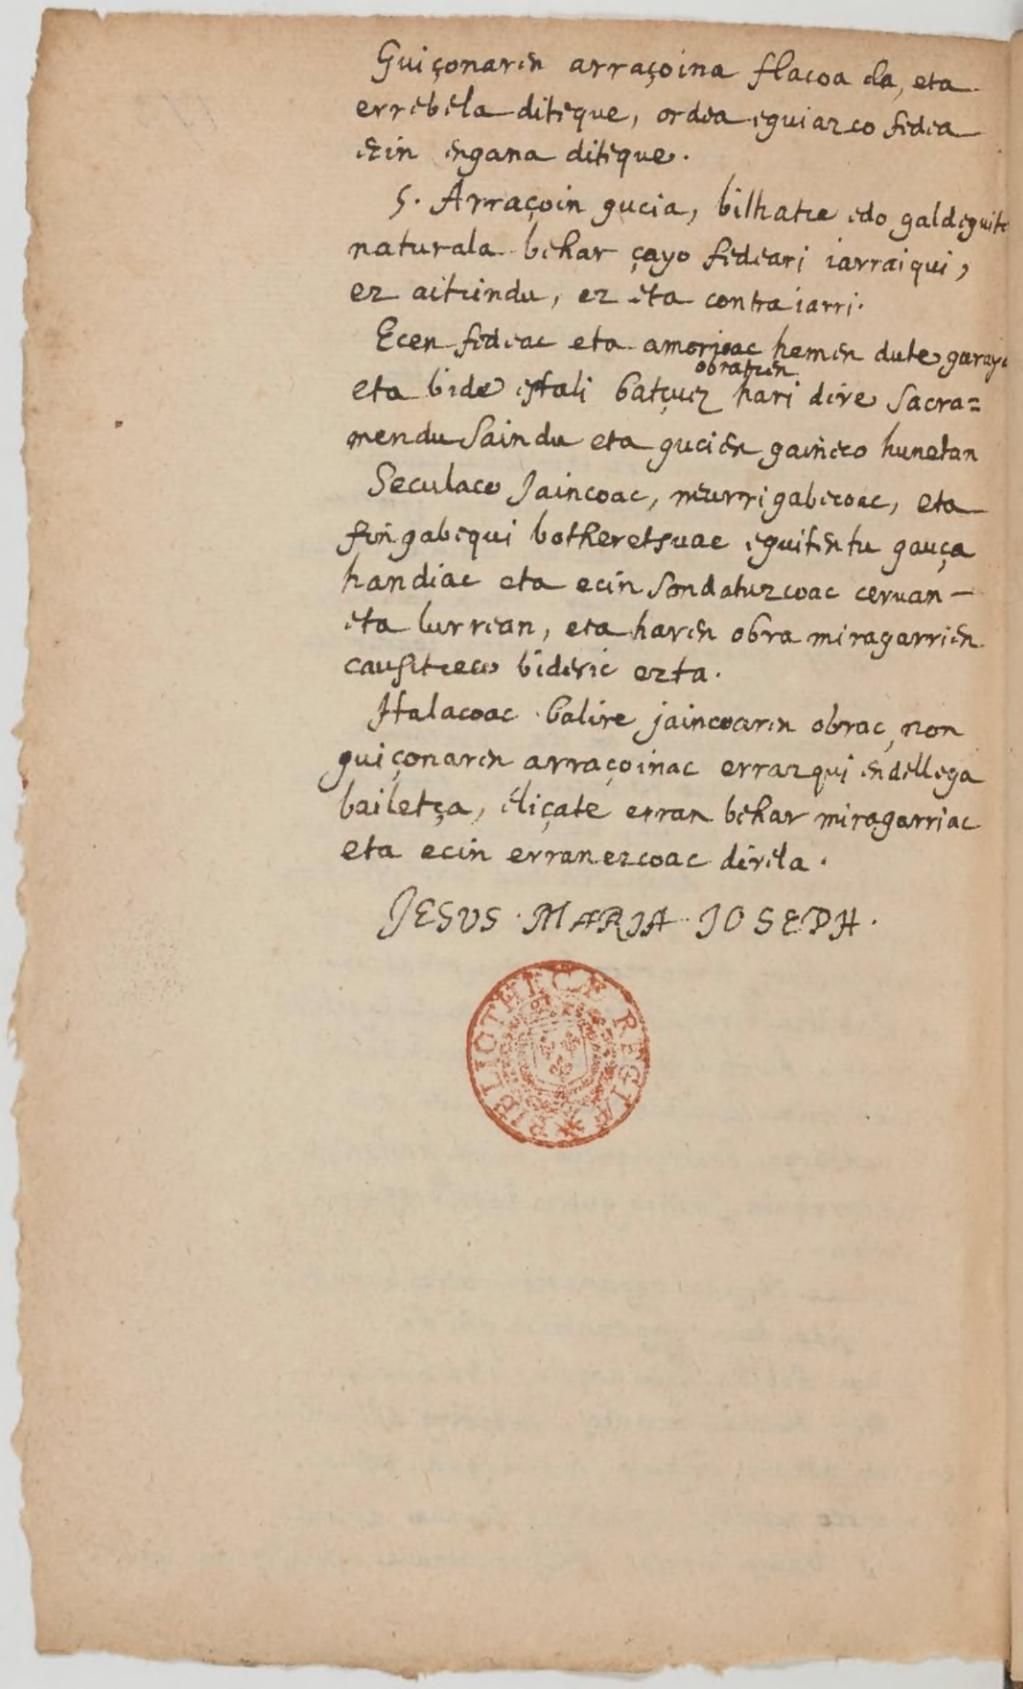 Guiçonaren arraçoina flacoa da, eta
errebela diteque, ordea eguiazco fedea
ezin engana diteque.
5. Arraçoin gucia, bilhatze edo galdeguite
naturala behar çayo fedeari iarraiqui,
ez aitzindu, ez eta contra iarri.
Ecen fedeac eta amorioac hemen dute garayi
obratzen
eta bide estali batçuez hari dire Sacra=
mendu Saindu eta gucien gaineco hunetan
Seculaco Jaincoac, neurri gabecoac, eta
fin gabequi botheretsuac eguiten tu gauça
handiac eta ecin sondatuzcoac ceruan
eta lurrean, eta haren obra miragarrien
causitzeco bideric ezta.
Halacoac balire jaincoaren obrac, non
guiçonaren arraçoinac errazqui endelega
bailetça, eliçate erran behar miragarriac
eta ecin erranezcoac direla.
JESUS · MARIA · JOSEPH ·
BIBLIOTHECÆ REGIÆ